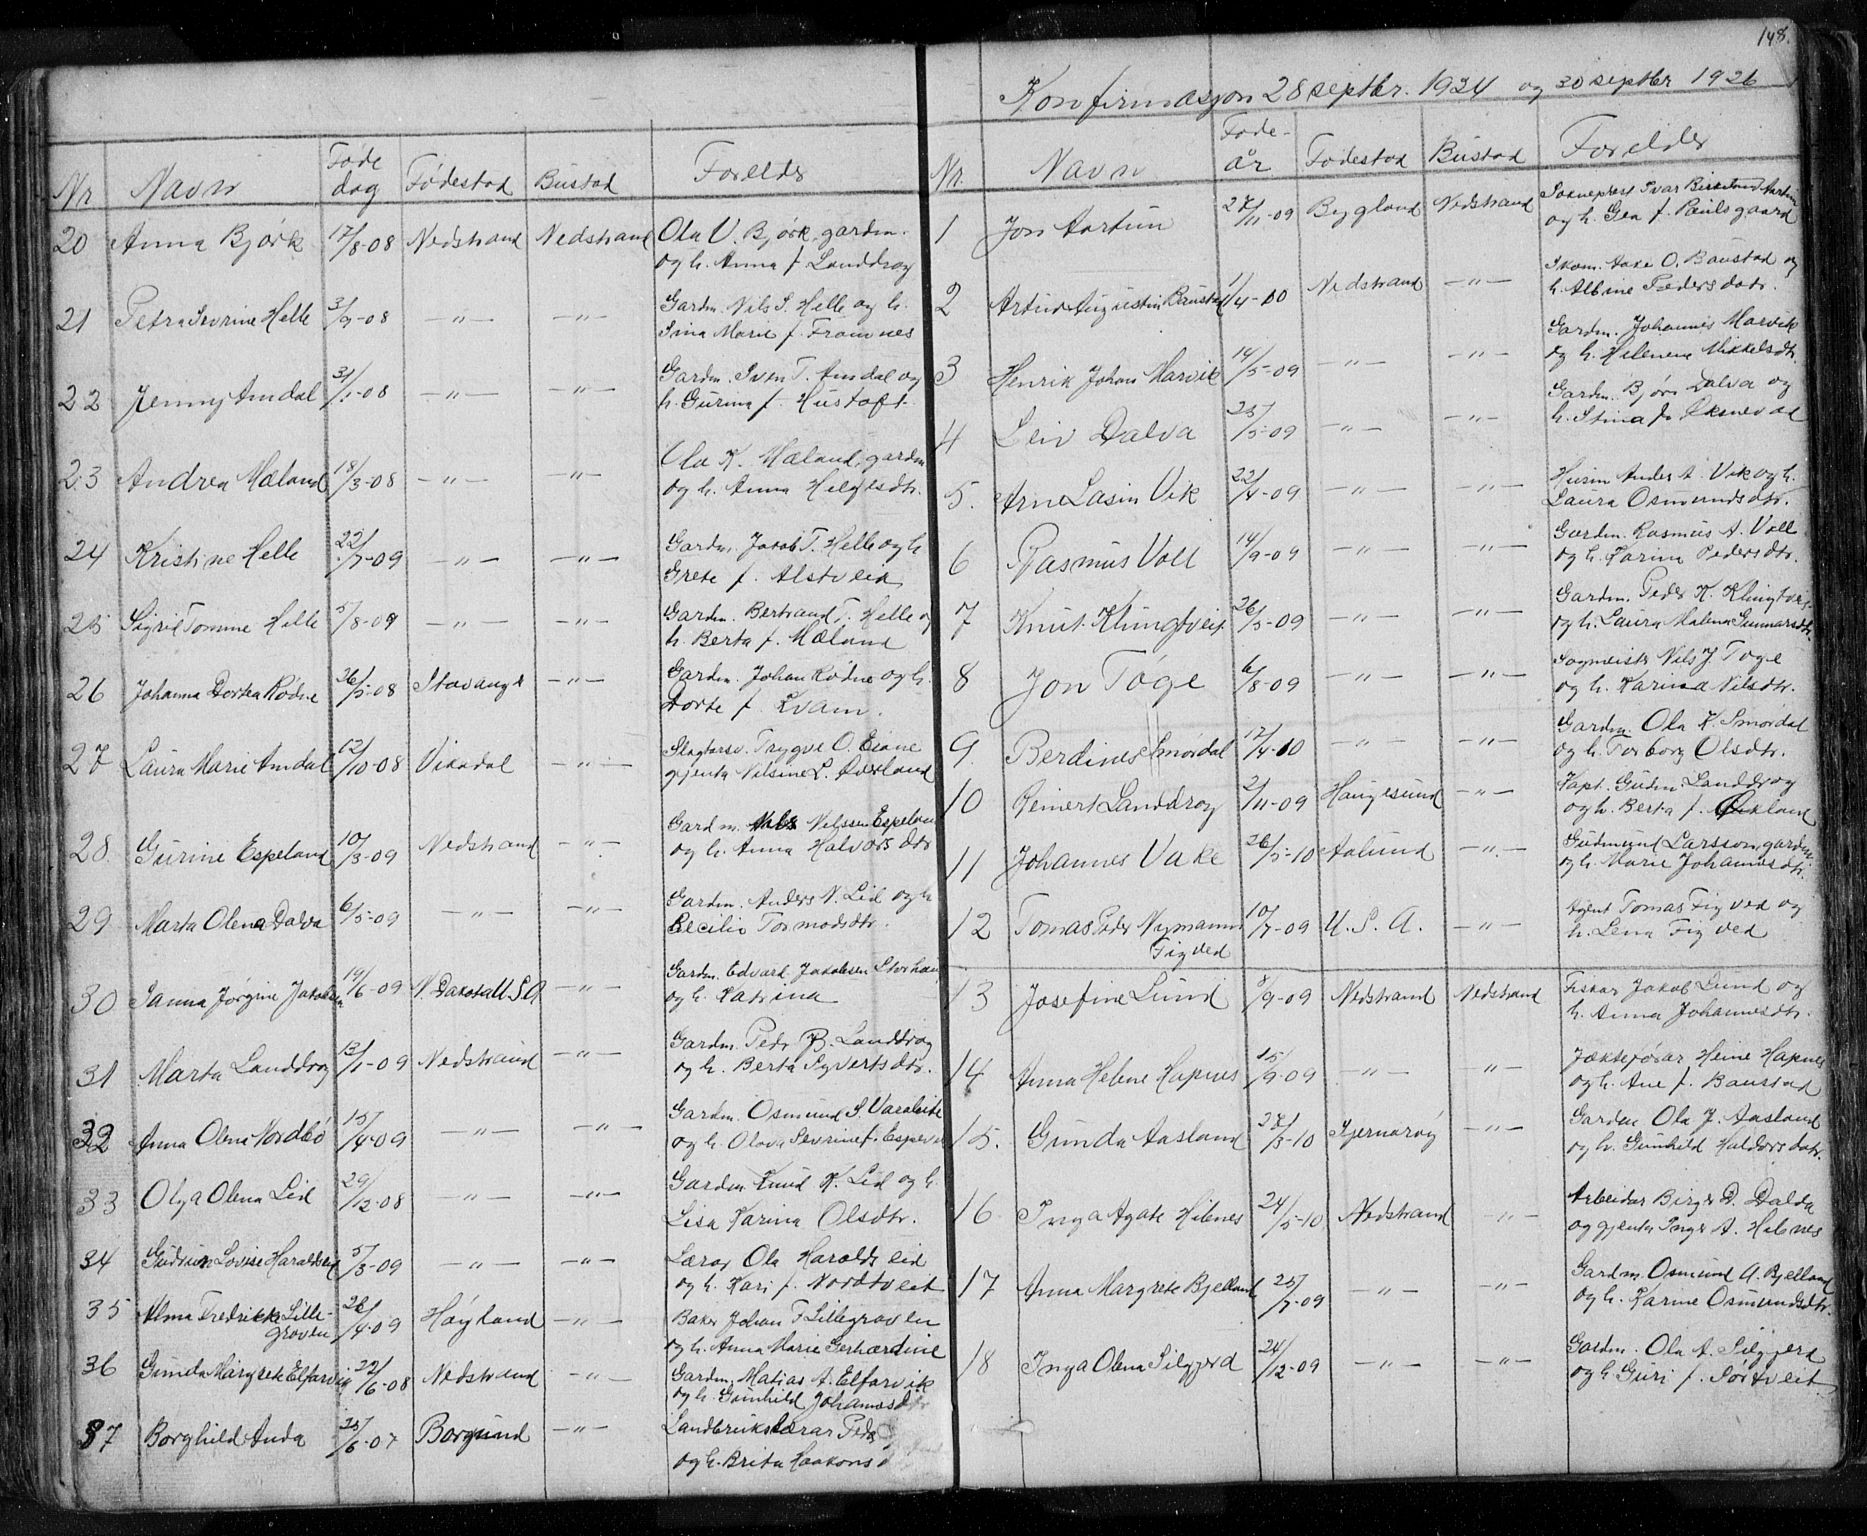 Nr Navn Føde dag Fødestad Bustad Forelder
20 Anna Bjørk 17/8-08 Nedstrand Nedstrand Ola V. Bjørk, gardm.
og h. Anna f. Landdrag
21 Petra Severine Helle 3/9-08 —"— —"— Gardm. Nils S. Helle og h.
Sina Marie f. Framnes
22 Jenny Amdal 31/1-08 —"— —"— Gardm. Sven T. Amdal og
h. Gurina f. Hustoft
23 Andrea Mæland 18/3-08 —"— —"— Ola K. Mæland, gardm
og h. Anna Helgesdtr.
24 Kristine Helle 22/7-09 —"— —"— Gardm. Jakob T. Helle og h.
Grete f. Alstveid
25 Sigrid Tomine Helle 5/8-09 —"— —"— Gardm. Bertrand T. Helle og
h. Berta f. Mæland
26 Johanna Dortea Rødne 26/5-08 Stavanger —"— Gardm. Johan Rødne og h.
Dorte f. Kvam.
27 Laura Marie Amdal 12/10-08 Vikadal —"— Trygve O. Eiane
gjenta Nilsine L.
28. Gurine Espeland 10/3-09 Nedstrand —"— Gardm. Nils Nilssen Espeland
og h. Anna Halvorsdtr
29 Marta Olena Dalva 6/5-09 —"— —"— Gardm. Anders N. Lid og h
Cecilie Tormodsdtr.
30 Sanna Jørgine Jakobsen 14/6-09 N. Dakota U.S.A —"— Gardm. Edvard Jakobsen Storhaug
og h. Katrina
31 Marta Landdrag 13/1-09 Nedstrand —"— Gardm. Peder B. Landdrag
og h. Berta Syvertsdtr.
32 Anna Olena Nordbø 15/4-09 —"— —"— Gardm. Osmund S. Varaleite
og h. Olava Severine f. Espevik
33 Olga Olena Lid 29/12-08 —"— —"— Gardm. Knud K. Lid og h.
Lisa Karina Olsdtr.
34 Gudrun Lovise Haraldseid 5/3-09 —"— —"— Lærar Ola Haraldseid
og h. Kari f. Nordtveit
35 Alma Fredrikke Lille-
graven 26/4-09 Høyland —"— Baker Johan F Lillegraven
og h. Anna Marie Gerhardine
36 Gunda Margrete Elfarvig 22/6-08 Nedstrand —"— Gardm. Matias A. Elfarvik
og h. Gunhild Johannesdtr
37 Borghild Anda 25/6-07 Borgund —"— Landbrukslærar Peder
og h. Brita Haakonsd
148.
Konfirmasjon 28 septbr. 1924 og 30 septbr 1926
Nr. Navn Føde-
år Fødestad Bustad Forelder
1 Jon Aartun 27/11-09 Bygland Nedstrand Sokneprest Ivar Birkeland Aartun
og h. Gea f. Paulsgaard
2 Artur Augustin Baustad 1/4-10 Nedstrand —"— Skom. Aake O. Baustad og
h. Albine Pedersdotr.
3 Henrik Johan Marvik 14/5-09 —"— —"— Gardm. Johannes Marvik
og h. Helene Mikkelsdtr.
4 Leiv Dalva 25/5-09 —"— —"— Gardm. Bjørn Dalva og
h. Stina f. Øksnevad
5. Arne Lasin Vik 22/4-09 —"— —"— Husm Anders A. Vik og h.
Laura Osmundsdtr.
6 Rasmus Voll 14/9-09 —"— —"— Gardm. Rasmus A. Voll
og h. Karina Pedersdtr.
7 Knut Klungtveit 26/5-09 —"— —"— Gardm. Peder K. Klungtveit
og h. Laura Malena Gunnarsdtr.
8 Jon Tøge 6/8-09 —"— —"— Sogmeistr Nils J Tøge
og h. Karina Nilsdtr.
9 Berdines Smørdal 17/4-10 —"— —"— Gardm Ola K Smørdal
og h. Torborg Olsdtr.
10 Reinert Landdrag 2/11-09 Haugesund —"— Kapt. Gudm. Landdrag
og h. Berta f.
11 Johannes Vake 26/5-10 Aalund —"— Gudmund Larsson, gardm.
og h. Marie Johannesdtr.
12 Tomas Peder Nymann
Figved 10/7-09 U.S.A. —"— Agent Tomas Figved og
h. Lena Figved
13 Josefine Lund 8/9-09 Nedstrand Nedstrand Fiskar Jakob Lund og
h. Anna Johannesdtr.
14 Anna Helene Hapnes 15/9-09 —"— —"— Jækteførar Heine Hapnes
og h. Ane f. Baustad
15. Gunda Aasland 27/3-10 Hjernarøy —"— Gardm Ola J. Aasland
og h. Gunhild Haldorsdotr.
16 Inga Agate Hibnes 24/5-10 Nedstrand —"— Arbeidar Birger D. Dalva
og gjenta Inger A. Hibnes
17 Anna Margrete Bjelland 25/7-09 —"— —"— Gardm. Osmund A. Bjelland
og h. Karine Osmundsdtr.
18 Inga Olena Silgjerd 24/12-09 —"— —"— Gardm. Ola A. Silgjerd
og h. Guri f. Sørtveit